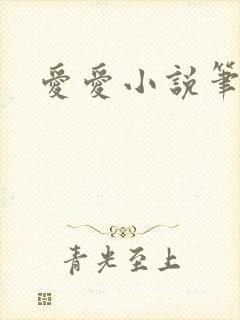 愛愛小說筆
青光至上